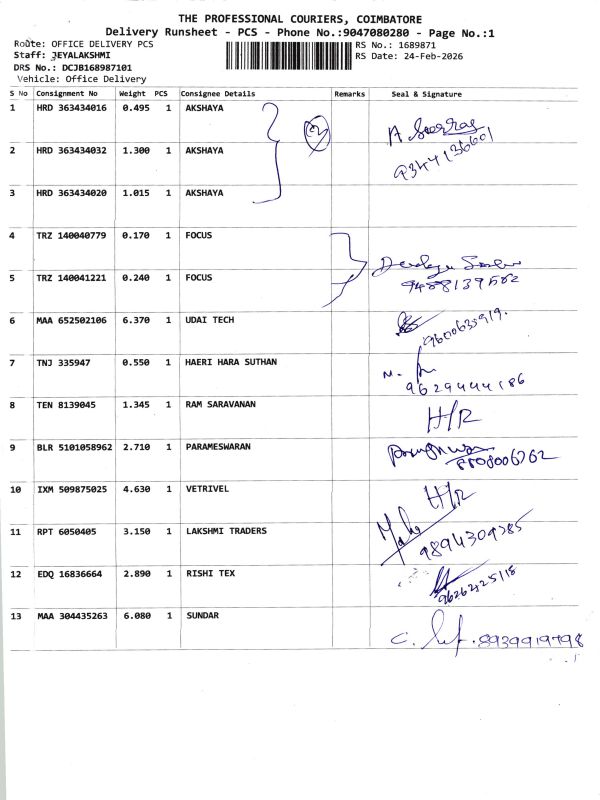 THE PROFESSIONAL COURIERS, COIMBATORE
Delivery Runsheet - PCS - Phone No.:9047080280 - Page No.:1
Route: OFFICE DELIVERY PCS
Staff: JEYALAKSHMI
DRS No.: DCJB168987101
Vehicle: Office Delivery
RS No.: 1689871
RS Date: 24-Feb-2026
S No Consignment No Weight PCS Consignee Details Remarks Seal & Signature
1 HRD 363434016 0.495 1 AKSHAYA
9344136601
2 HRD 363434032 1.300 1 AKSHAYA
3 HRD 363434020 1.015 1 AKSHAYA
4 TRZ 140040779 0.170 1 FOCUS
5 TRZ 140041221 0.240 1 FOCUS
6 MAA 652502106 6.370 1 UDAI TECH
7 TNJ 335947 0.550 1 HAERI HARA SUTHAN
9629444186
8 TEN 8139045 1.345 1 RAM SARAVANAN H/R
9 BLR 5101058962 2.710 1 PARAMESWARAN
10 IXM 509875025 4.630 1 VETRIVEL H/R
11 RPT 6050405 3.150 1 LAKSHMI TRADERS
9894309285
12 EDQ 16836664 2.890 1 RISHI TEX
13 MAA 304435263 6.080 1 SUNDAR
8939919798